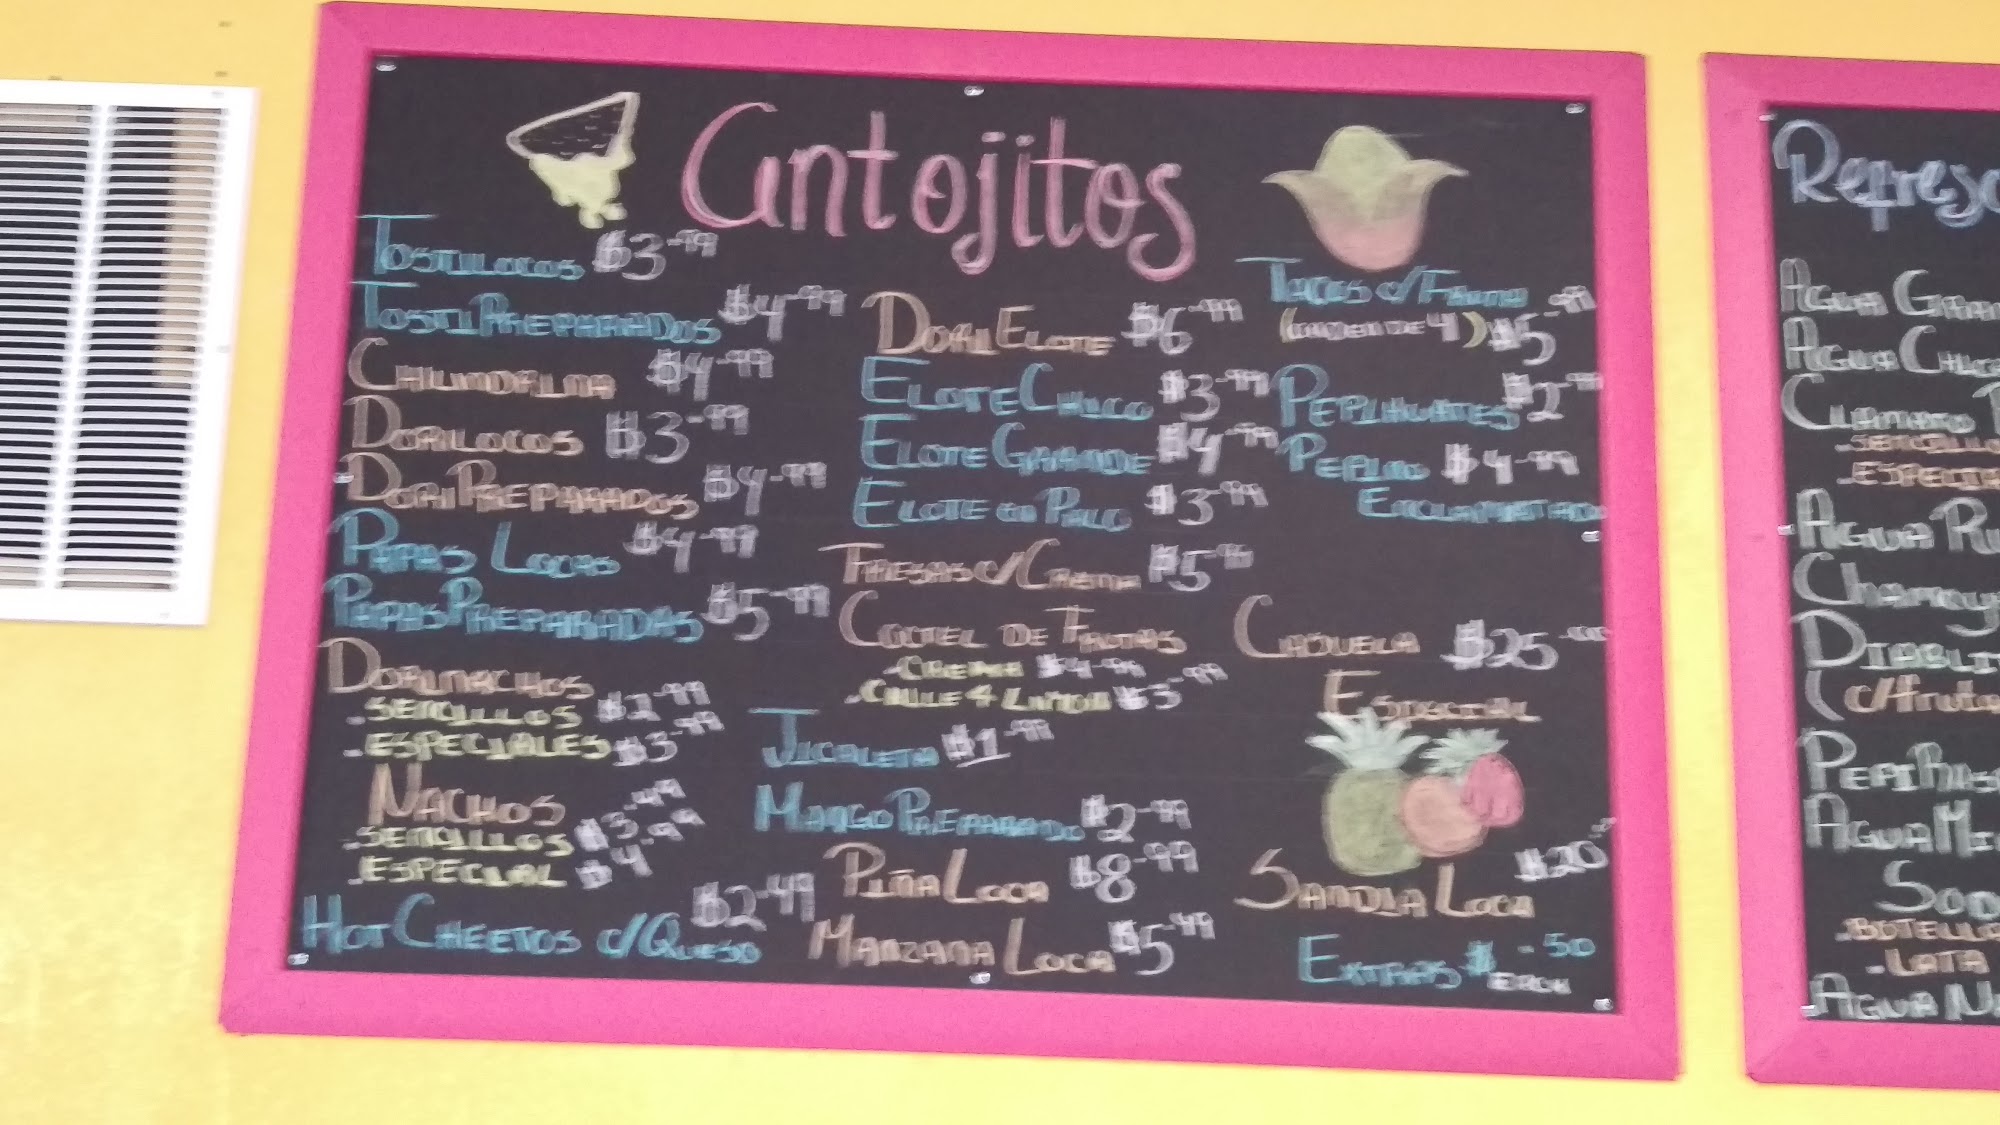 Antojitos
Tostilocos $3.99
TostiPreparados $4.99
Chilindrina $4.99
Dorilocos $3.99
DoriPreparados $4.99
Papas Locas $4.99
Papas Preparadas $5.99
Dorinachos
.Sencillos $2.99
.Especiales $3.99
Nachos
.Sencillos $3.49
.Especial $4.99
Hot Cheetos c/Queso $2.49
Dori Elote $6.99
Elote Chico $3.99
Elote Grande $4.99
Elote en Palo $3.99
Fresas c/Crema $5.99
Coctel de Frutas
.Crema $4.99
.Chile y Limon $3.99
Jicaleta $1.99
Mango Preparado $2.99
Piña Loca $8.99
Manzana Loca $5.49
Tacos c/Fruta
(orden de 4) $5.99
Pepihuates $2.99
Pepino $4.99
Enclamatado
Casuela $25.00
Especial
Sandia Loca $20
Extras $.50
Each
Refresc
Agua Gran
Agua Chic
Clamato
.Sencillo
.Especia
Agua
Chamoy
Diabli
(c/fruta
Agua Mi
Sod
.Botella
-Lata
Agua Na